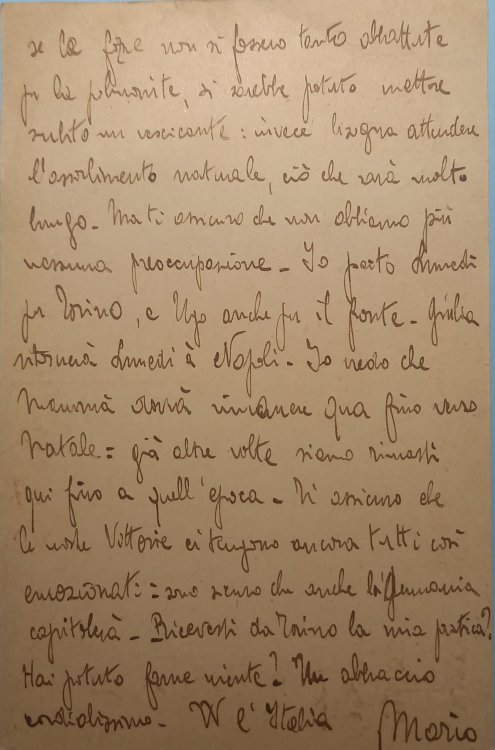 se le forze non si fossero tanto abbattute
per la polmonite, si sarebbe potuto mettere
subito un vescicante: invece bisogna attendere
l'assorbimento naturale, ciò che sarà molto
lungo. Ma ti assicuro che non abbiamo più
nessuna preoccupazione. Io parto Lunedì
per Torino, e Ugo anche per il fronte. Giulia
ritornerà Lunedì à Napoli. Io vedo che
Mammà dovrà rimanere qua fino verso
Natale = già altre volte siamo rimasti
qui fino a quell'epoca. Ti assicuro che
le nostre Vittorie ci tengono ancora tutti così
emozionati = sono sicuro che anche la Germania
capitolerà. Ricevesti da Torino la mia pratica?
Hai potuto farne niente? Un abbraccio
cordialissimo. W l'Italia Mario